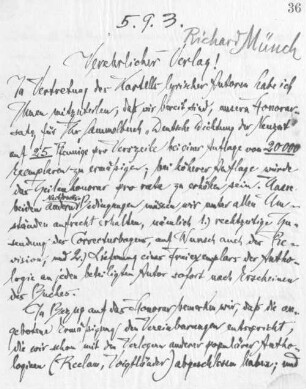 36
5. 9. 3.
Richard Münch
Verehrlicher Verlag!
In Vertretung des Kartells lyrischer Autoren habe ich
Ihnen mitzuteilen, daß wir bereit sind, unsern Honorar-
satz für Ihr Sammelbuch „Deutsche Dichtung der Neuzeit"
auf 25 Pfennige pro Verszeile bei einer Auflage von 20000
Exemplaren zu ermäßigen; bei höherer Auflage würde
das Zeilenhonorar pro rata zu erhöhen sein. Unsere
beiden andern Bedingungen müssen wir unter allen Um-
ständen aufrecht erhalten, nämlich 1) rechtzeitige Zu-
sendung der Correcturbogen, auf Wunsch auch der Re-
vision, und 2) Lieferung eines Freiexemplars der Antho-
logie an jeden beteiligten Autor sofort nach Erscheinen
des Buches.
In Bezug auf das Honorar bemerken wir, daß die an-
gebotene Ermäßigung den Vereinbarungen entspricht,
die wir schon mit den Verlegern anderer populärer Antho-
logieen (Reclam, Voigtländer) abgeschlossen haben; und